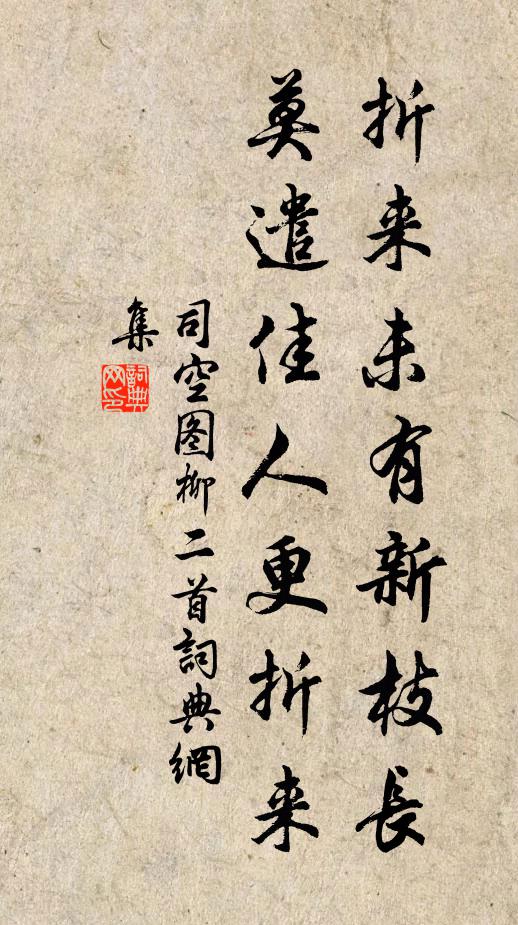 折来未有新枝長
莫遣佳人更折来
司空图柳二首詞典網
集
詞典網印